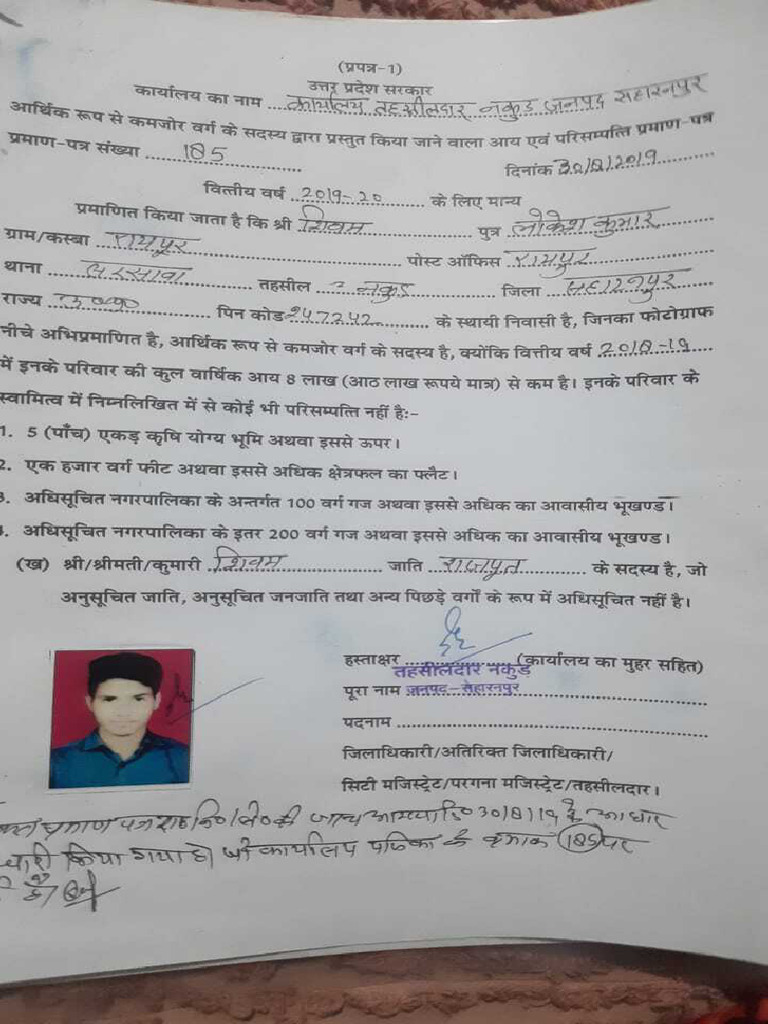 (प्रपत्र-1)
उत्तर प्रदेश सरकार
कार्यालय का नाम ...कार्यालय तहसीलदार नकुड जनपद सहारनपुर
आर्थिक रूप से कमजोर वर्ग के सदस्य द्वारा प्रस्तुत किया जाने वाला आय एवं परिसम्पत्ति प्रमाण-पत्र
प्रमाण-पत्र संख्या ......185............ दिनांक 30/8/2019......
वित्तीय वर्ष ..2019-20........ के लिए मान्य
प्रमाणित किया जाता है कि श्री शिवम .................. पुत्र ..लोकेश कुमार........
ग्राम/कस्बा ...रामपुर.............................. पोस्ट ऑफिस ..रामपुर..................
थाना .....सरसावा.................. तहसील ...नकुड............ जिला ...सहारनपुर......
राज्य ...उ०प्र०............... पिन कोड 247242......... के स्थायी निवासी है, जिनका फोटोग्राफ
नीचे अभिप्रमाणित है, आर्थिक रूप से कमजोर वर्ग के सदस्य है, क्योंकि वित्तीय वर्ष 2018-19....
में इनके परिवार की कुल वार्षिक आय 8 लाख (आठ लाख रूपये मात्र) से कम है। इनके परिवार के
स्वामित्व में निम्नलिखित में से कोई भी परिसम्पत्ति नहीं है:-
1. 5 (पाँच) एकड़ कृषि योग्य भूमि अथवा इससे ऊपर।
2. एक हजार वर्ग फीट अथवा इससे अधिक क्षेत्रफल का फ्लैट।
3. अधिसूचित नगरपालिका के अन्तर्गत 100 वर्ग गज अथवा इससे अधिक का आवासीय भूखण्ड।
4. अधिसूचित नगरपालिका के इतर 200 वर्ग गज अथवा इससे अधिक का आवासीय भूखण्ड।
(ख) श्री/श्रीमती/कुमारी ..शिवम............... जाति ..राजपूत............ के सदस्य है, जो
अनुसूचित जाति, अनुसूचित जनजाति तथा अन्य पिछड़े वर्गों के रूप में अधिसूचित नहीं है।
हस्ताक्षर ..................(कार्यालय का मुहर सहित)
तहसीलदार नकुड
पूरा नाम जनपद-सहारनपुर..............................
पदनाम ..................................................
जिलाधिकारी/अतिरिक्त जिलाधिकारी/
सिटी मजिस्ट्रेट/परगना मजिस्ट्रेट/तहसीलदार।
प्रमाण पत्र रा०नि०/ले० की जांच आख्या दि० 30/8/19 के आधार
जारी किया गया है। जो कार्यालय पंजिका के क्रमांक 185 पर
है।